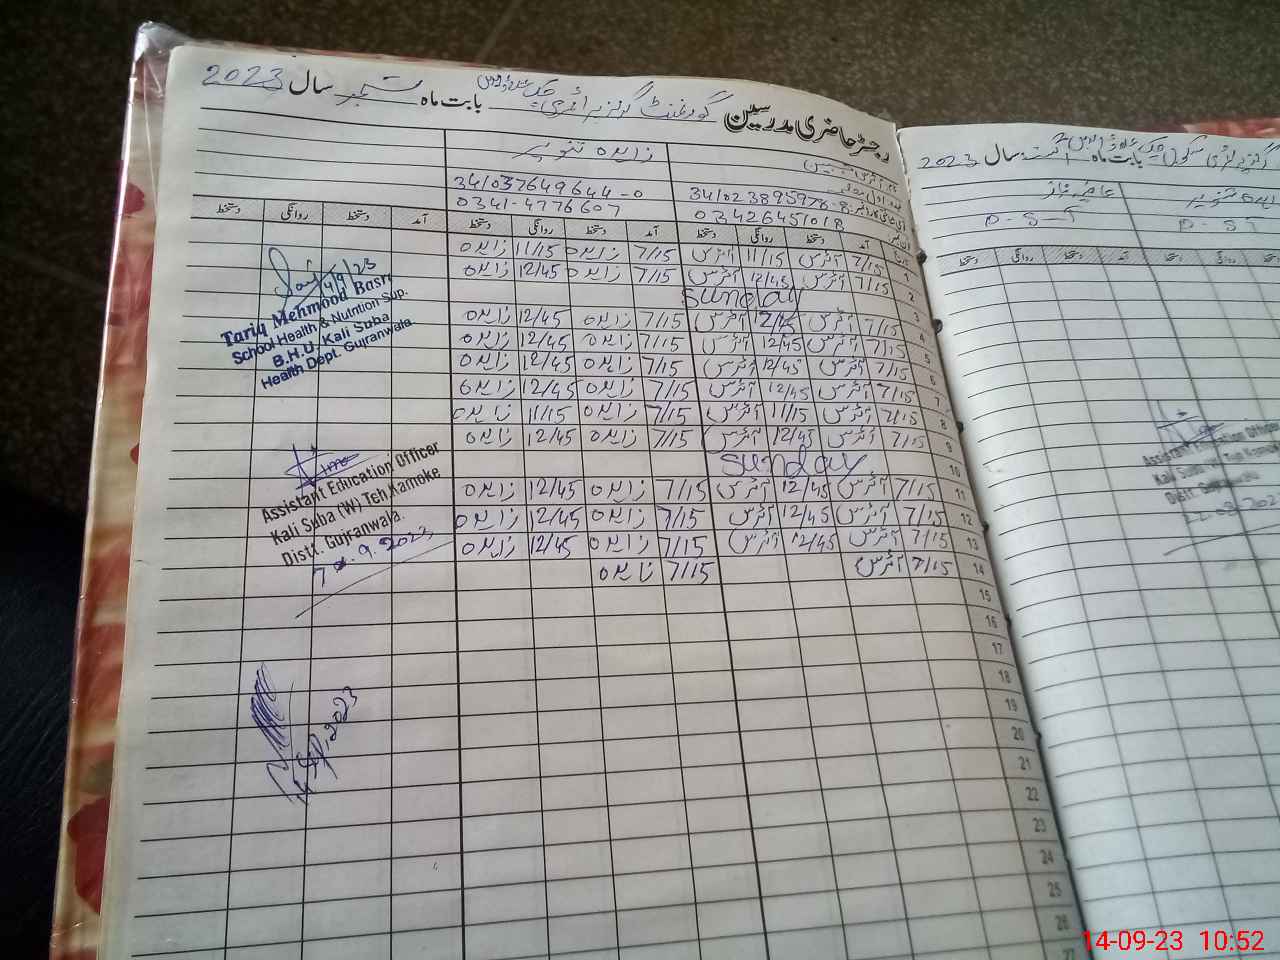 رجسٹر حاضری مدرسین گورنمنٹ گرلز پرائمری بابت ماہ ستمبر سال 2023
زاہدہ تنویر
34102 3895978-8 34103 7649644-0
03426451018 0341-4776607
آمد دستخط روانگی دستخط آمد دستخط روانگی دستخط آمد دستخط روانگی دستخط
1 7/15 آئرس 11/15 آئرس 7/15 زاہدہ 11/15 زاہدہ
2 7/15 آئرس 12/45 آئرس 7/15 زاہدہ 12/45 زاہدہ
3 sunday
4 7/15 آئرس 12/45 آئرس 7/15 زاہدہ 12/45 زاہدہ
5 7/15 آئرس 12/45 آئرس 7/15 زاہدہ 12/45 زاہدہ
6 7/15 آئرس 12/45 آئرس 7/15 زاہدہ 12/45 زاہدہ
7 7/15 آئرس 12/45 آئرس 7/15 زاہدہ 12/45 زاہدہ
8 7/15 آئرس 11/15 آئرس 7/15 زاہدہ 11/15 زاہدہ
9 7/15 آئرس 12/45 آئرس 7/15 زاہدہ 12/45 زاہدہ
10 sunday
11 7/15 آئرس 12/45 آئرس 7/15 زاہدہ 12/45 زاہدہ
12 7/15 آئرس 12/45 آئرس 7/15 زاہدہ 12/45 زاہدہ
13 7/15 آئرس 12/45 آئرس 7/15 زاہدہ 12/45 زاہدہ
14 7/15 آئرس 7/15 زاہدہ
15
16
17
18
19
20
21
22
23
24
25
26
27
4/9/23
Tariq Mehmood Basra
School Health & Nutrition Sup.
B.H.U. Kali Suba
Health Dept. Gujranwala.
Assistant Education Officer
Kali Suba (W) Teh Kamoke
Distt. Gujranwala.
7.9.2023
Sep, 2023
گرلز پرائمری سکول بابت ماہ اگست سال 2023
تنویر
D-ST D-ST
آمد دستخط روانگی دستخط
Assistant Education Officer
Kali Suba (W) Teh Kamoke
Distt. Gujranwala
14-09-23 10:52